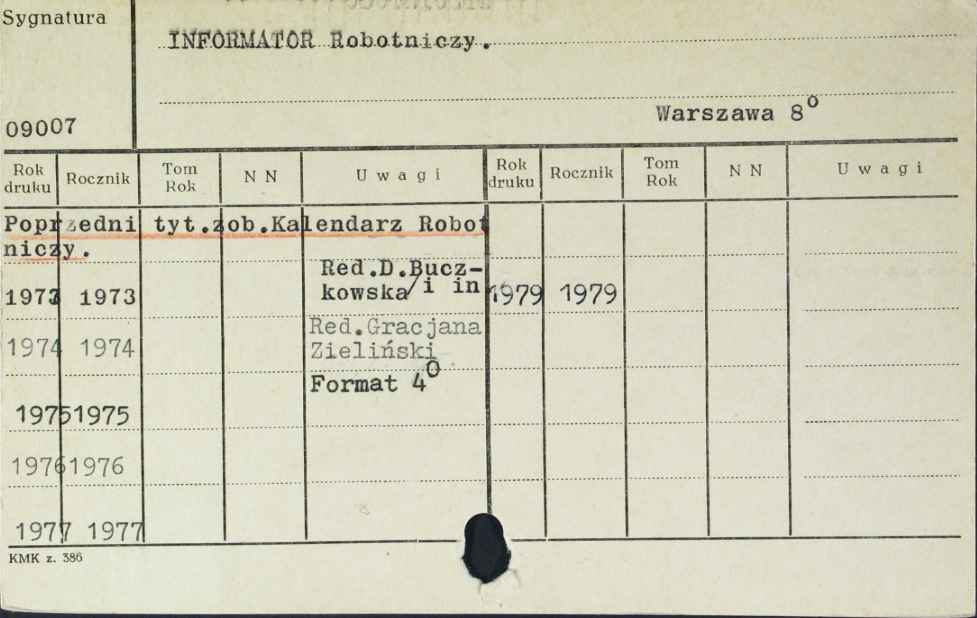 Sygnatura
INFORMATOR Robotniczy.
Warszawa 8⁰
09007
Rok druku Rocznik Tom Rok N N U w a g i Rok druku Rocznik Tom Rok N N U w a g i
Poprzedni tyt.zob.Kalendarz Robot
niczy.
Red.D.Bucz-
1973 1973 kowska/i in 1979 1979
Red.Gracjana
1974 1974 Zieliński
Format 4⁰
1975 1975
1976 1976
1977 1977
KMK z. 386